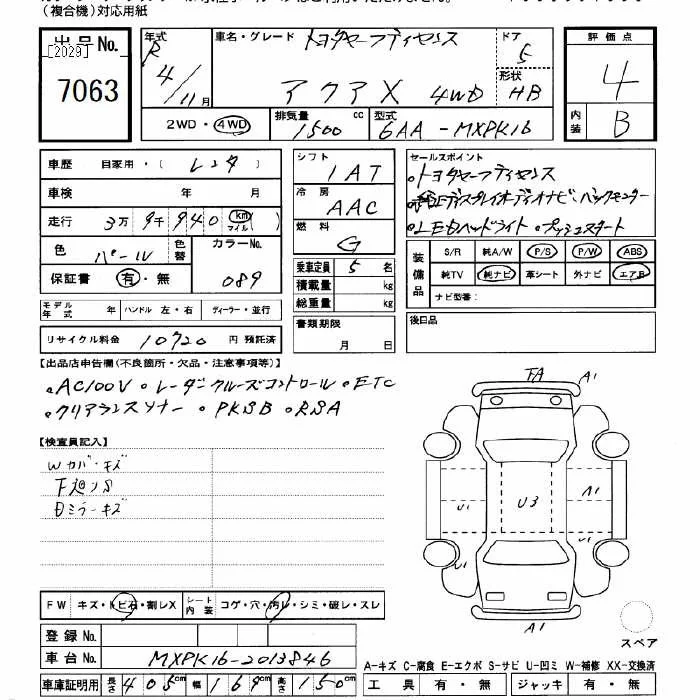 (複合機)対応用紙
出品No. [2029] 7063
年式 R 4/11月
車名・グレード トヨタセーフティセンス
アクア X 4WD
ドア 5
形状 HB
2WD・4WD
排気量 1500 cc
型式 6AA-MXPK16
評価点 4
内装 B
車歴 自家用・(レンタ)
車検 年 月
走行 3万9千940 km マイル ( )
色 パール
色替
カラーNo. 089
保証書 有・無
モデル年式 年 ハンドル 左・右 ディーラー・並行
リサイクル料金 10720 円 預託済
シフト 1AT
冷房 AAC
燃料 G
乗車定員 5 名
積載量 kg
総重量 kg
書類期限
月 日
セールスポイント
・トヨタセーフティセンス
・純正ディスプレイオーディオナビ バックモニター
・LEDヘッドライト ・プッシュスタート
装備品 S/R 純A/W P/S P/W ABS
純TV 純ナビ 革シート 外ナビ エアB
ナビ型番:
後日品
【出品店申告欄(不良箇所・欠品・注意事項等)】
・AC100V ・レーダークルーズコントロール ・ETC
・クリアランスソナー ・PKSB ・RSA
【検査員記入】
Wカバ・キズ
下廻りS
Dミラーキズ
FA A1
U3
A1
U1
U1
A1
FW キズ・トビ石・割レX シート内装 コゲ・穴・汚レ・シミ・破レ・スレ
登録No.
車台No. MXPK16-2013846
車庫証明用 長さ 405cm 幅 169cm 高さ 150cm
スペア
A-キズ C-腐食 E-エクボ S-サビ U-凹ミ W-補修 XX-交換済
工具 有・無 ジャッキ 有・無